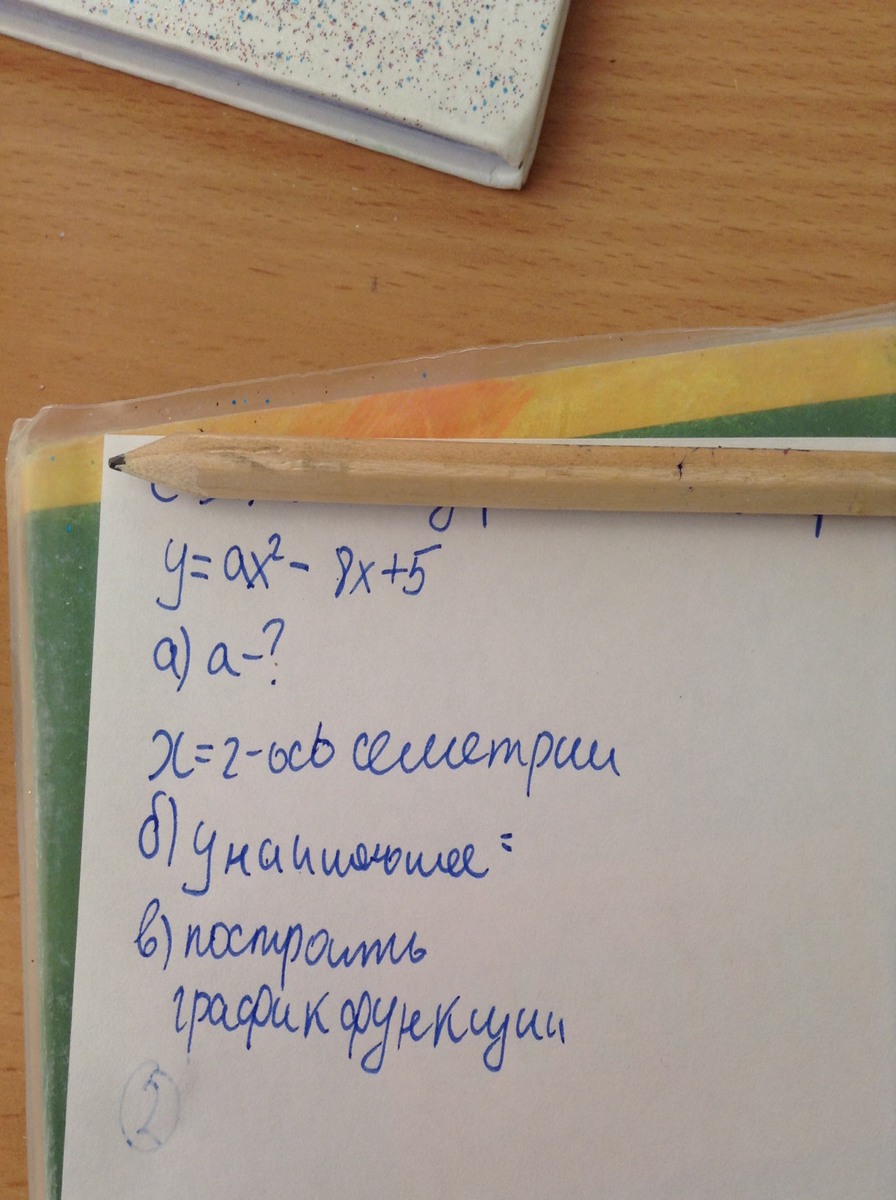 y=ax²- 8x+5
а) a-?
x=2-ось семетрии
б) y наименьшее =
в) построить
график функции
2